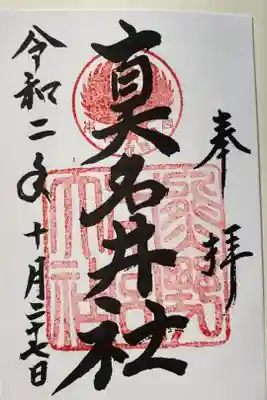 奉拝
真名井社
令和二年十月二十七日
熊野大社